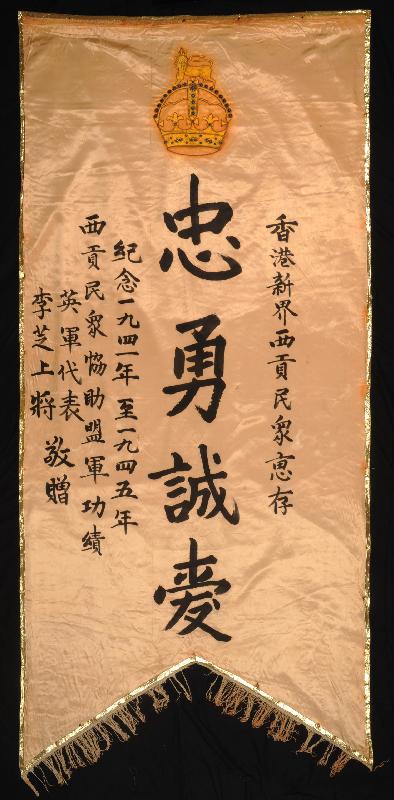 香港新界西貢民眾惠存
忠勇誠愛
紀念一九四一年至一九四五年
西貢民眾協助盟軍功績
英軍代表
李芝上將
敬贈